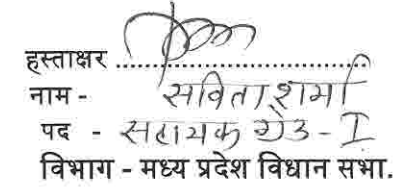 हस्ताक्षर ........................................
नाम - सविता शर्मा
पद - सहायक ग्रेड - I
विभाग - मध्य प्रदेश विधान सभा.